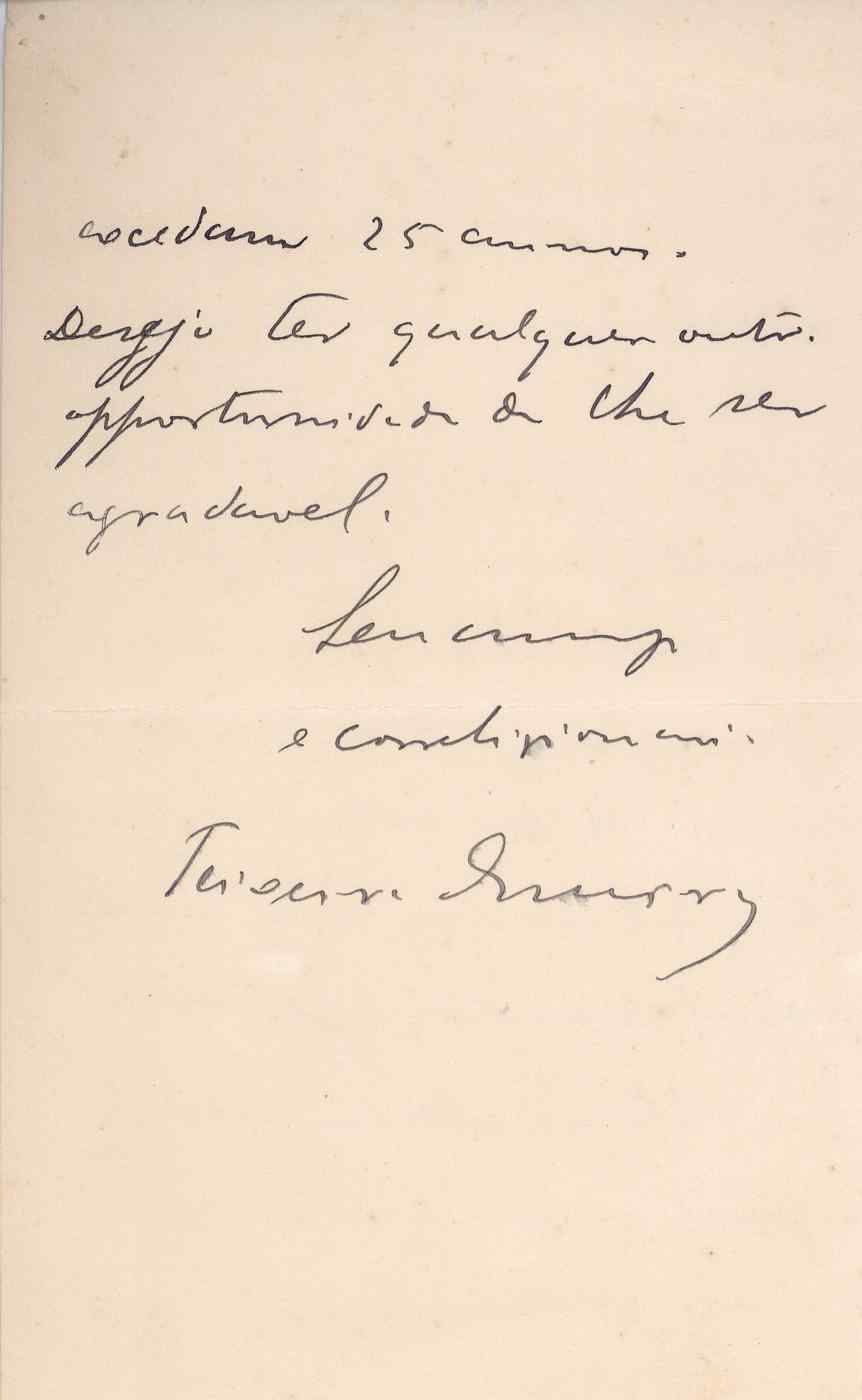 excedam 25 annos.
Desejo ter qualquer outra
opportunidade de lhe ser
agradavel.
Seu amigo
e correligionario
Teixeira